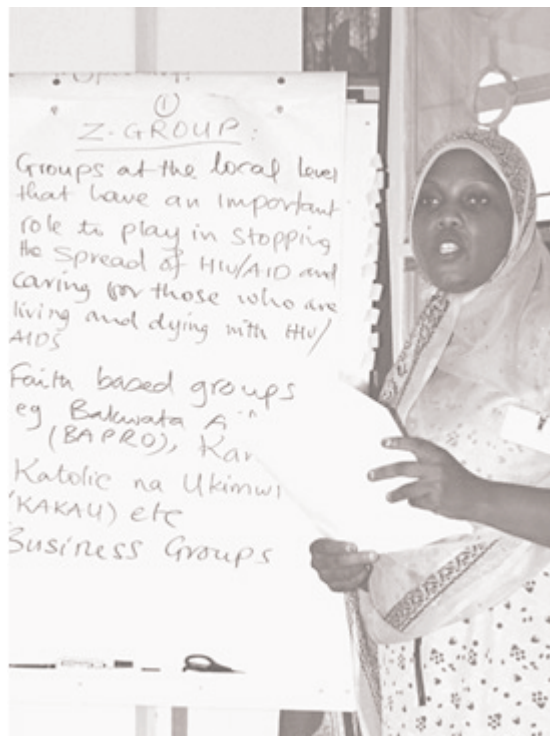 ①
Z-GROUP:
Groups at the local level
that have an important
role to play in stopping
the spread of HIV/AID and
caring for those who are
living and dying with HIV/
AIDS
Faith based groups
eg Bakwata
(BAPRO),
Katolic na Ukimwi
(KAKAU) etc
Business Groups